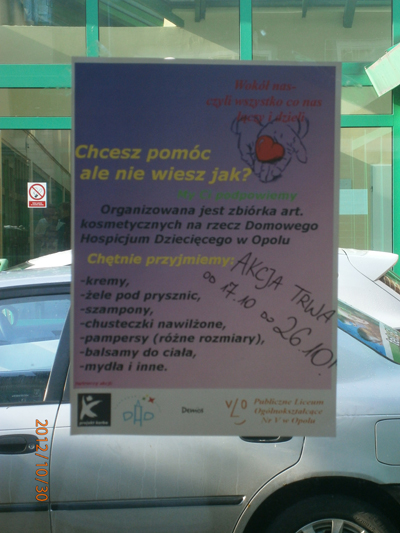 Wokół nas-
czyli wszystko co nas
łączy i dzieli
Chcesz pomóc
ale nie wiesz jak?
My Ci podpowiemy
Organizowana jest zbiórka art.
kosmetycznych na rzecz Domowego
Hospicjum Dziecięcego w Opolu
Chętnie przyjmiemy:
-kremy,
-żele pod prysznic,
-szampony,
-chusteczki nawilżone,
-pampersy (różne rozmiary),
-balsamy do ciała,
-mydła i inne.
AKCJA TRWA
OD 17.10 DO
26.10!
Publiczne Liceum
Ogólnokształcące
Nr V w Opolu
2012/10/30